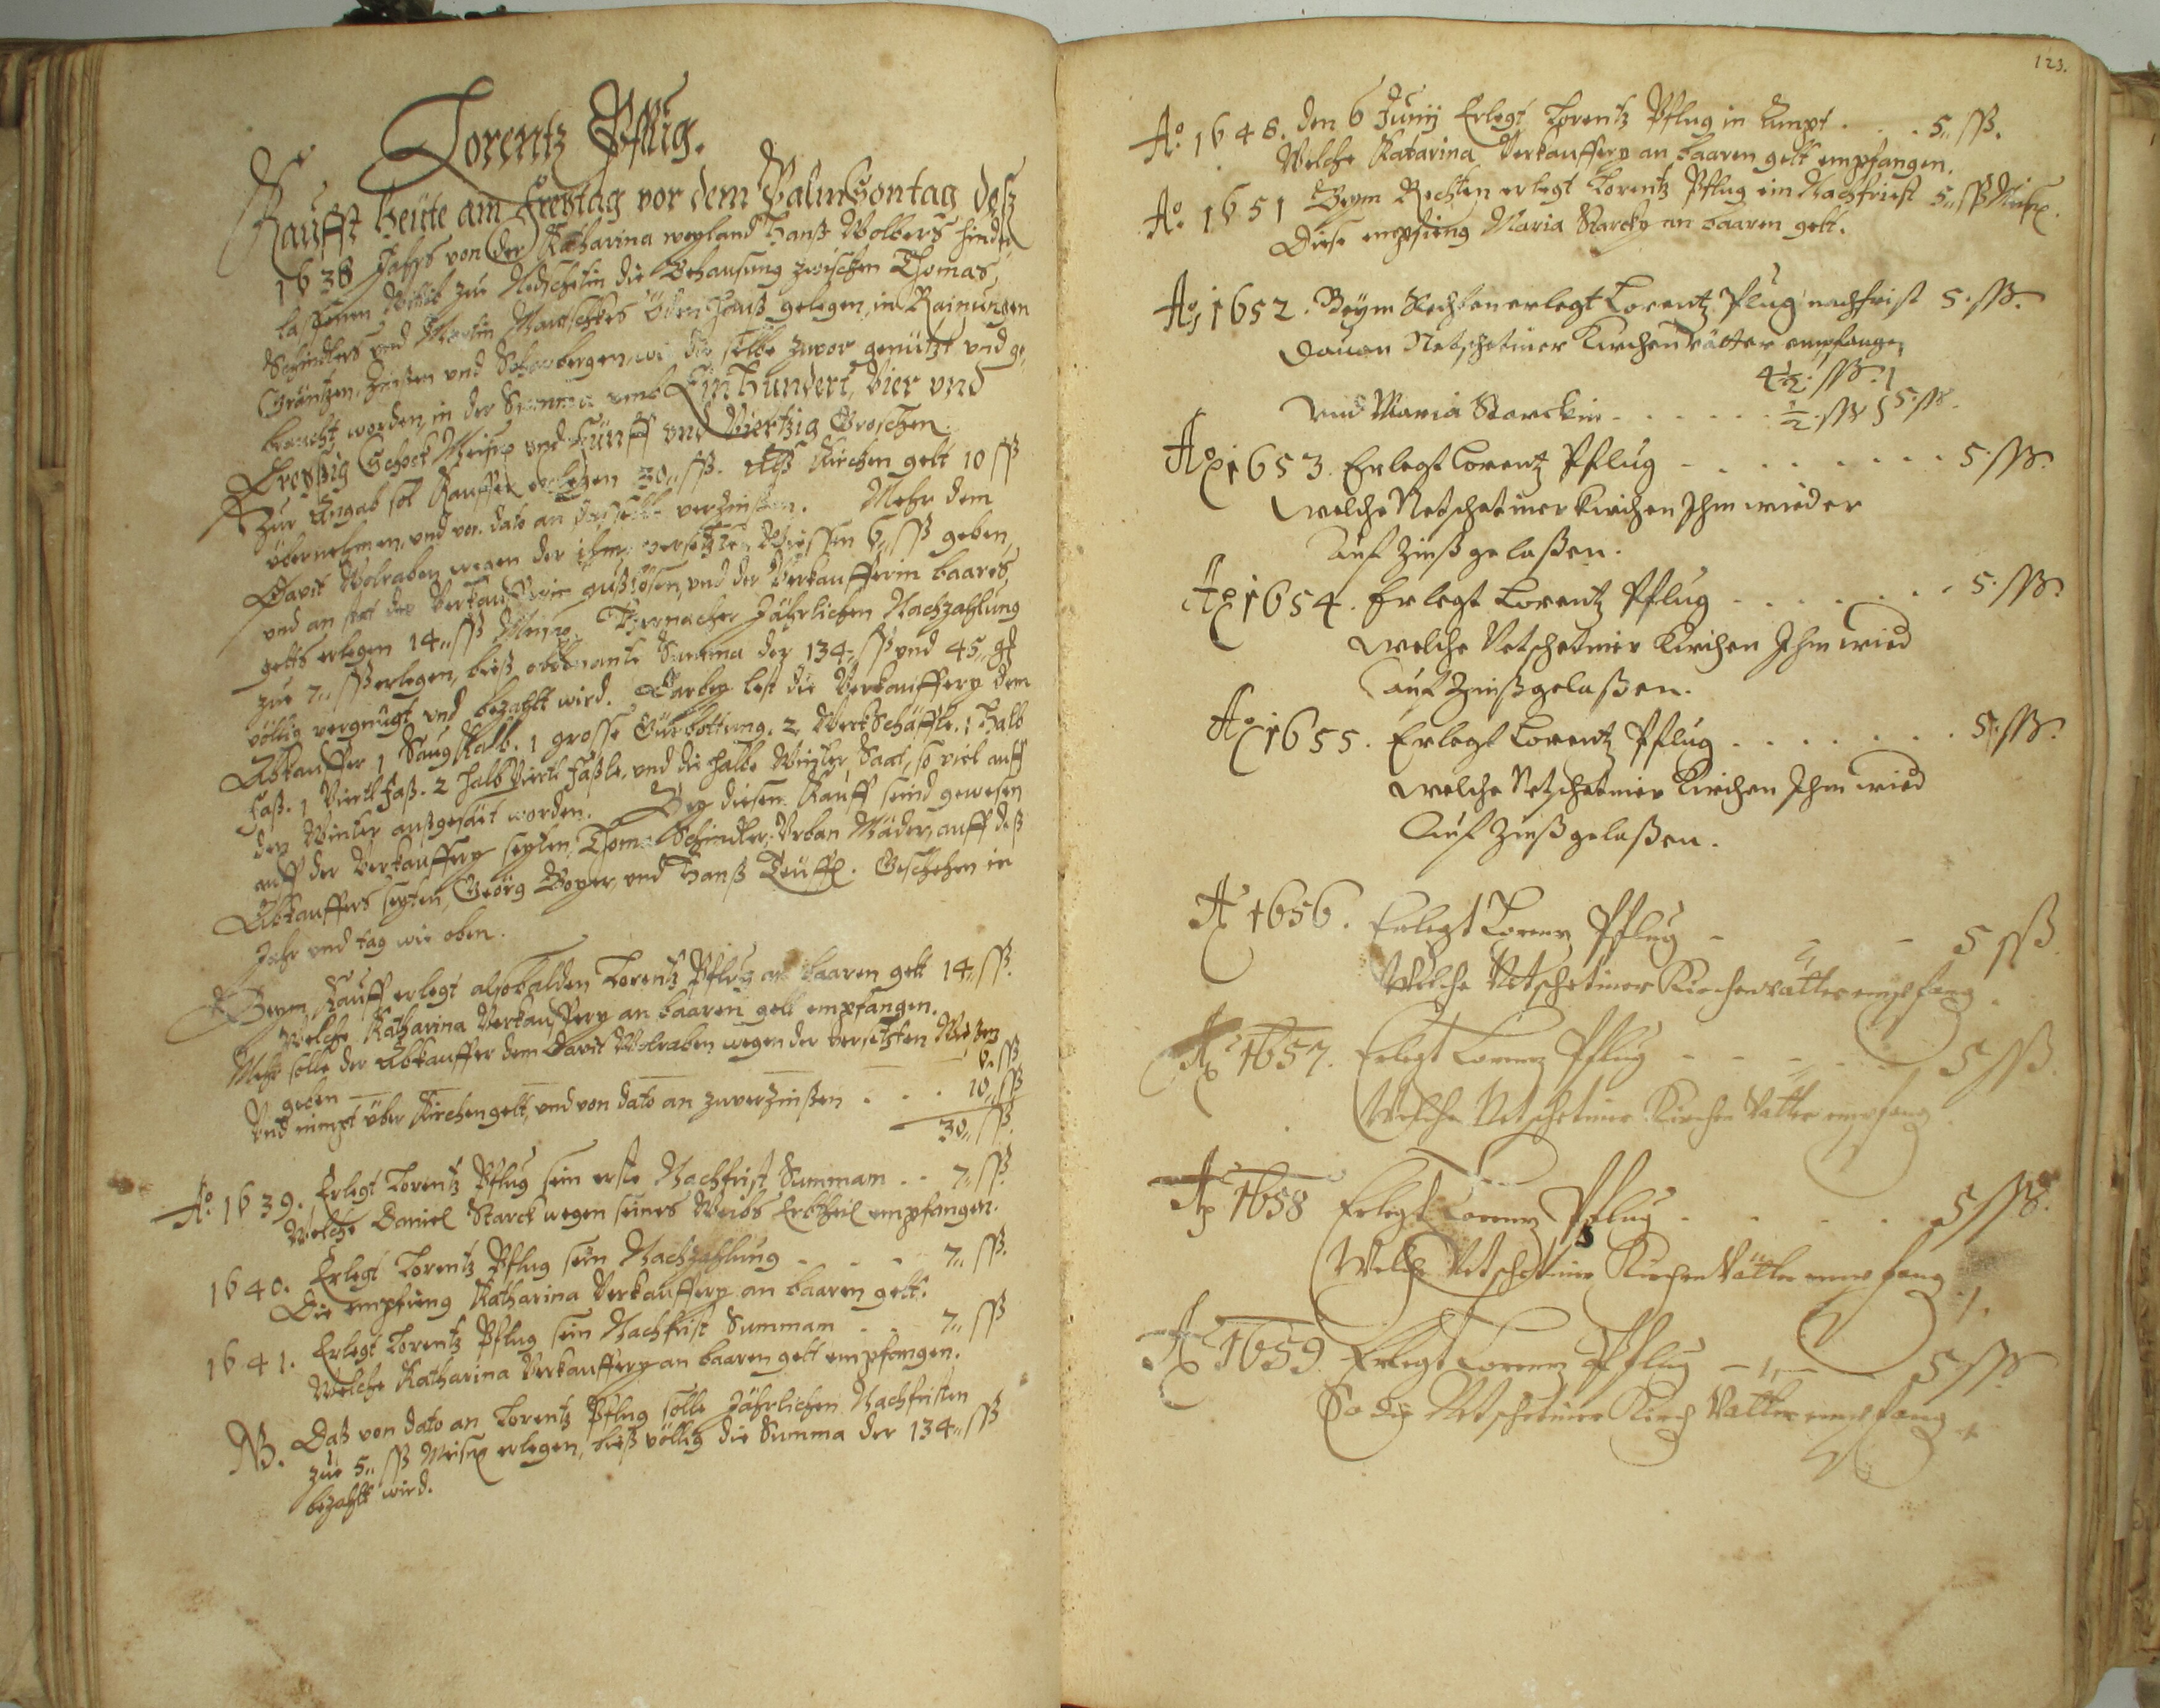 Lorentz Pflug.
Kaufft heüte am Freÿtag vor dem PalmSontag deß
1638 Jahrs von der Katharina weÿland Hanß Wolbers hinder
laßenen Wittib zue Netschetin die Behausung zwischen Thomas
Schindlers und Martin öden Hauß gelegen, in Rainungen
Gräntzen, Zinßen und wie die selbe zuvor genützt und ge,
braucht worden, in der Summa umb EinHundert, Vier und
Dreÿßig Schock Meißn und Fünff und Viertzig Groschen.
Zur Angab sol Kauffer erlegen 30,, ßß. Alß Kirchen gelt 10 ßß
übernehmen, und von dato an dieselbe verzinßen. Mehr dem
Davit Wolraben wegen der ihme versetzten Wießen 6,, ßß geben,
und an stat der Verkaufferin außlösen, und der Verkaufferin baares
gelts erlegen 14,, ßß Meißn. Hernacher Jährlichen Nachzahlung
zue 7,, ßß erlegen, bieß obbenante Summa der 134,, ßß und 45,, gß
völlig vergnügt und bezahlt wird. Darbeÿ lest die Verkaufferÿ dem
Abkauffer 1 Saug Kalb. 1 grosse 2 WerkSchäffle. 1 Halb
Faß. 1 Viertl Faß. 2 halb Viertl Fäßle, und die halbe Winter Saat, so viel auff
den Winter außgesäit worden. Beÿ diesen Kauff seind gewesen
auff der Verkaufferÿ seÿten, Thoma Schindler, Urban Mäder, auff deß
Abkauffers seÿten, Geörg Boÿer, und Hanß Teüffl. Geschehen in
Jahr und tag wie oben.
Beÿm Kauff erlegt alsobalden Lorentz Pflug an baaren gelt 14,, ßß.
Welche Katharina Verkaufferÿ an baaren gelt empfangen.
Mehr solle der Abkauffer dem Davit Wolraben wegen der versetzten Wießen
geben 6,, ßß
Und nimpt über Kirchengelt, und von dato an zuverzinßen . . . 10,, ßß
30,, ßß.
Ao. 1639. Erlegt Lorentz Pflug sein erste Nachfrist Summam . . 7,, ßß
Welche Daniel Starck wegen seines Weibs Erbtheil empfangen.
1640. Erlegt Lorentz Pflug sein Nachzahlung - - - 7,, ßß.
Die empfieng Katharina Verkaufferÿ an baaren gelt.
1641. Erlegt Lorentz Pflug sein Nachfrist Summam . . 7,, ßß
Welche Katharina Verkaufferÿ an baaren gelt empfangen.
NB. Daß von dato an Lorentz Pflug solle Jährlichen Nachfristen
zue 5,, ßß Meißn erlegen, bieß völlig die Summa der 134,, ßß
bezahlt wird.
123.
Ao. 1648. den 6 Junÿ Erlegt Lorentz Pflug in Ampt . . . 5,, ßß.
Welche Katarina Verkaufferÿ an baaren gelt empfangen.
Ao. 1651 Beÿm Rechten erlegt Lorentz Pflug ein Nachfrist 5,, ßß Meißn.
Diese empfieng Maria Starckÿ an baaren gelt.
Ao 1652. Beÿm Rechten erlegt Lorentz Pflug nachfrist 5. ßß.
Davon Netschetiner Kirchen Vätter empfangen
4½. ßß.
und Maria Starckin . . . . . . ½. ßß } 5. ßß.
Ao 1653. Erlegt Lorentz Pflug - . . . . . . . 5. ßß.
Welche Netschetiner Kirchen Ihm wieder
auf Zinß gelaßen.
Ao 1654. Erlegt Lorentz Pflug - . . . . . . 5. ßß.
Welche Netschetiner Kirchen Ihm wied
auf Zinß gelaßen.
Ao 1655. Erlegt Lorentz Pflug . . . . . . . 5. ßß.
Welche Netschetiner Kirchen Ihm wied
Auf Zinß gelaßen.
Ao 1656. Erlegt Lorenz Pflug - - - 5 ßß.
Welche Netschetiner Kirchenvätter empfang
Ao 1657. Erlegt Lorenz Pflug - - - - 5 ßß.
Welche Netschetiner Kirchen Vätter empfang
Ao 1658 Erlegt Lorenz Pflug . . . . . 5 ßß.
Welche Netschetiner Kirchen Vätter empfang
Ao 1659. Erlegt Lorenz Pflug - - 5. ßß.
So die Netschetiner Kirch Vätter empfang